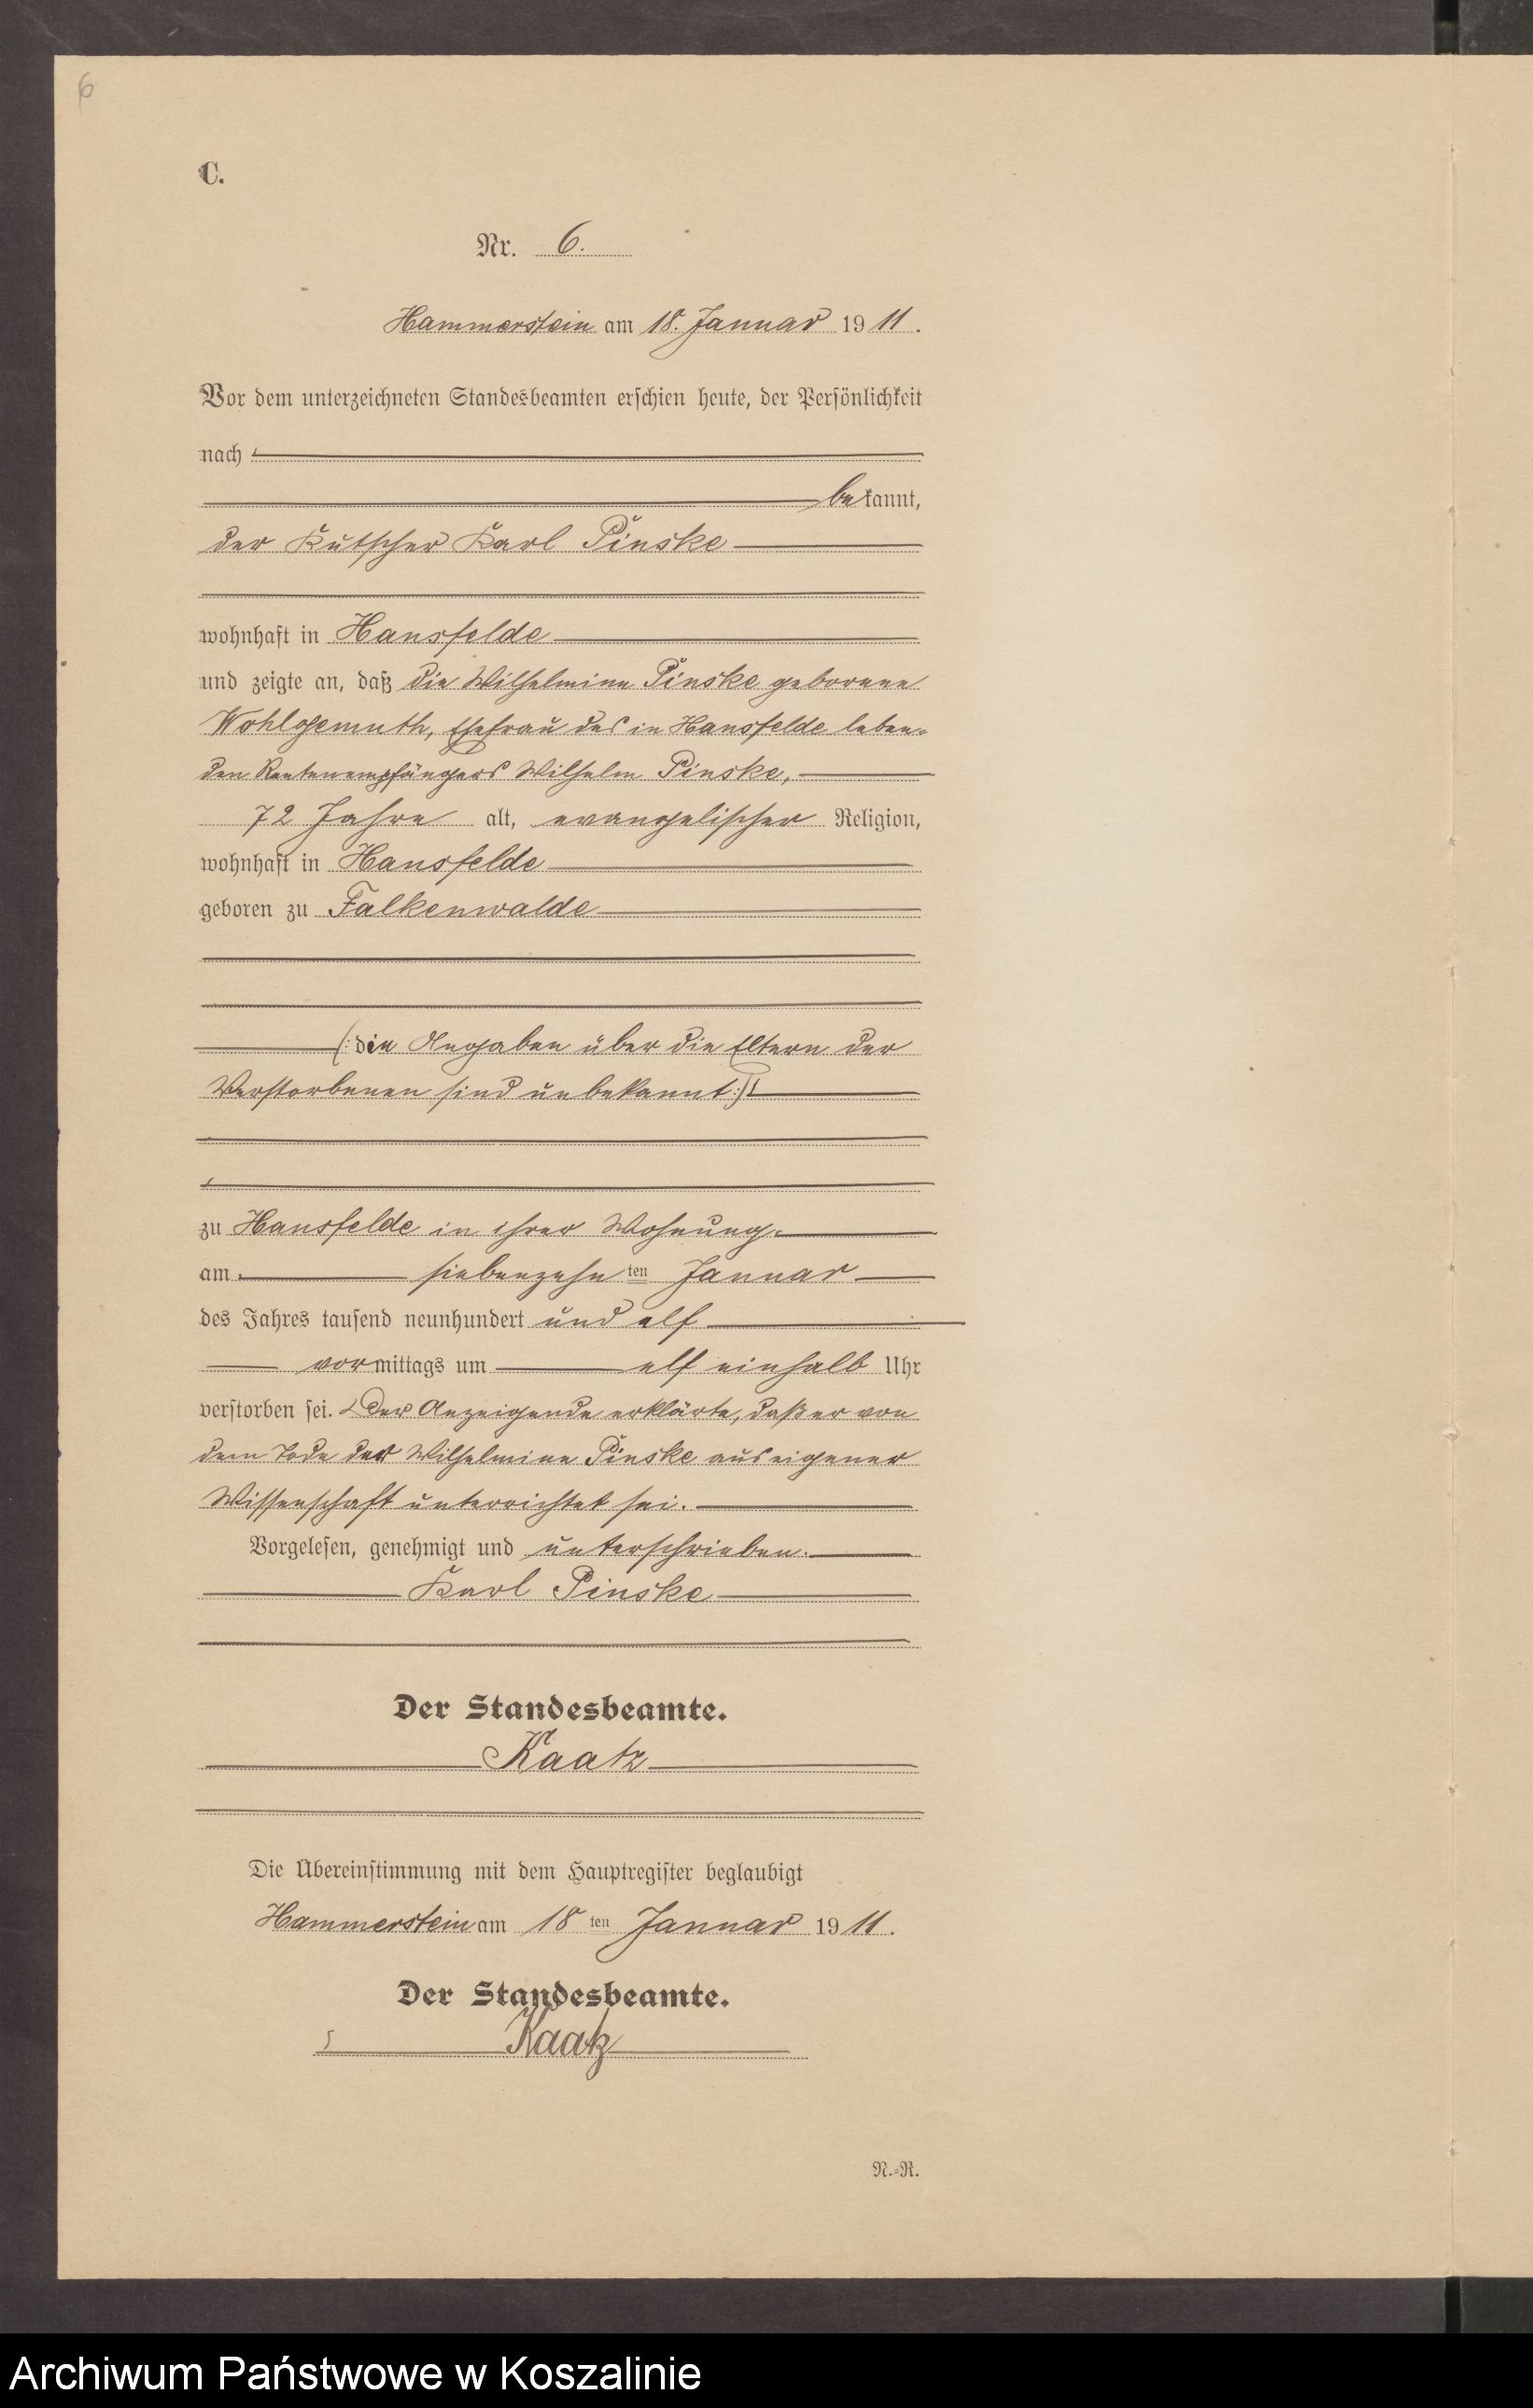 6
C.
Nr. 6.
Hammerstein am 18. Januar 1911.
Vor dem unterzeichneten Standesbeamten erschien heute, der Persönlichkeit
nach
bekannt,
der Kutscher Karl Pinske
wohnhaft in Hansfelde
und zeigte an, daß die Wilhelmine Pinske geborene
Wohlgemuth, Ehefrau des in Hansfelde leben-
den Rentenempfängers Wilhelm Pinske,
72 Jahre alt, evangelischer Religion,
wohnhaft in Hansfelde
geboren zu Falkenwalde
(: die Angaben über die Eltern der
Verstorbenen sind unbekannt :)
zu Hansfelde in ihrer Wohnung
am siebenzehnten Januar
des Jahres tausend neunhundert und elf
vormittags um elf einhalb Uhr
verstorben sei. Der Anzeigende erklärte, daß er von
dem Tode der Wilhelmine Pinske aus eigener
Wissenschaft unterrichtet sei.
Vorgelesen, genehmigt und unterschrieben.
Karl Pinske
Der Standesbeamte.
Kaatz
Die Übereinstimmung mit dem Hauptregister beglaubigt
Hammerstein am 18ten Januar 1911.
Der Standesbeamte.
Kaatz
N.-R.
Archiwum Państwowe w Koszalinie